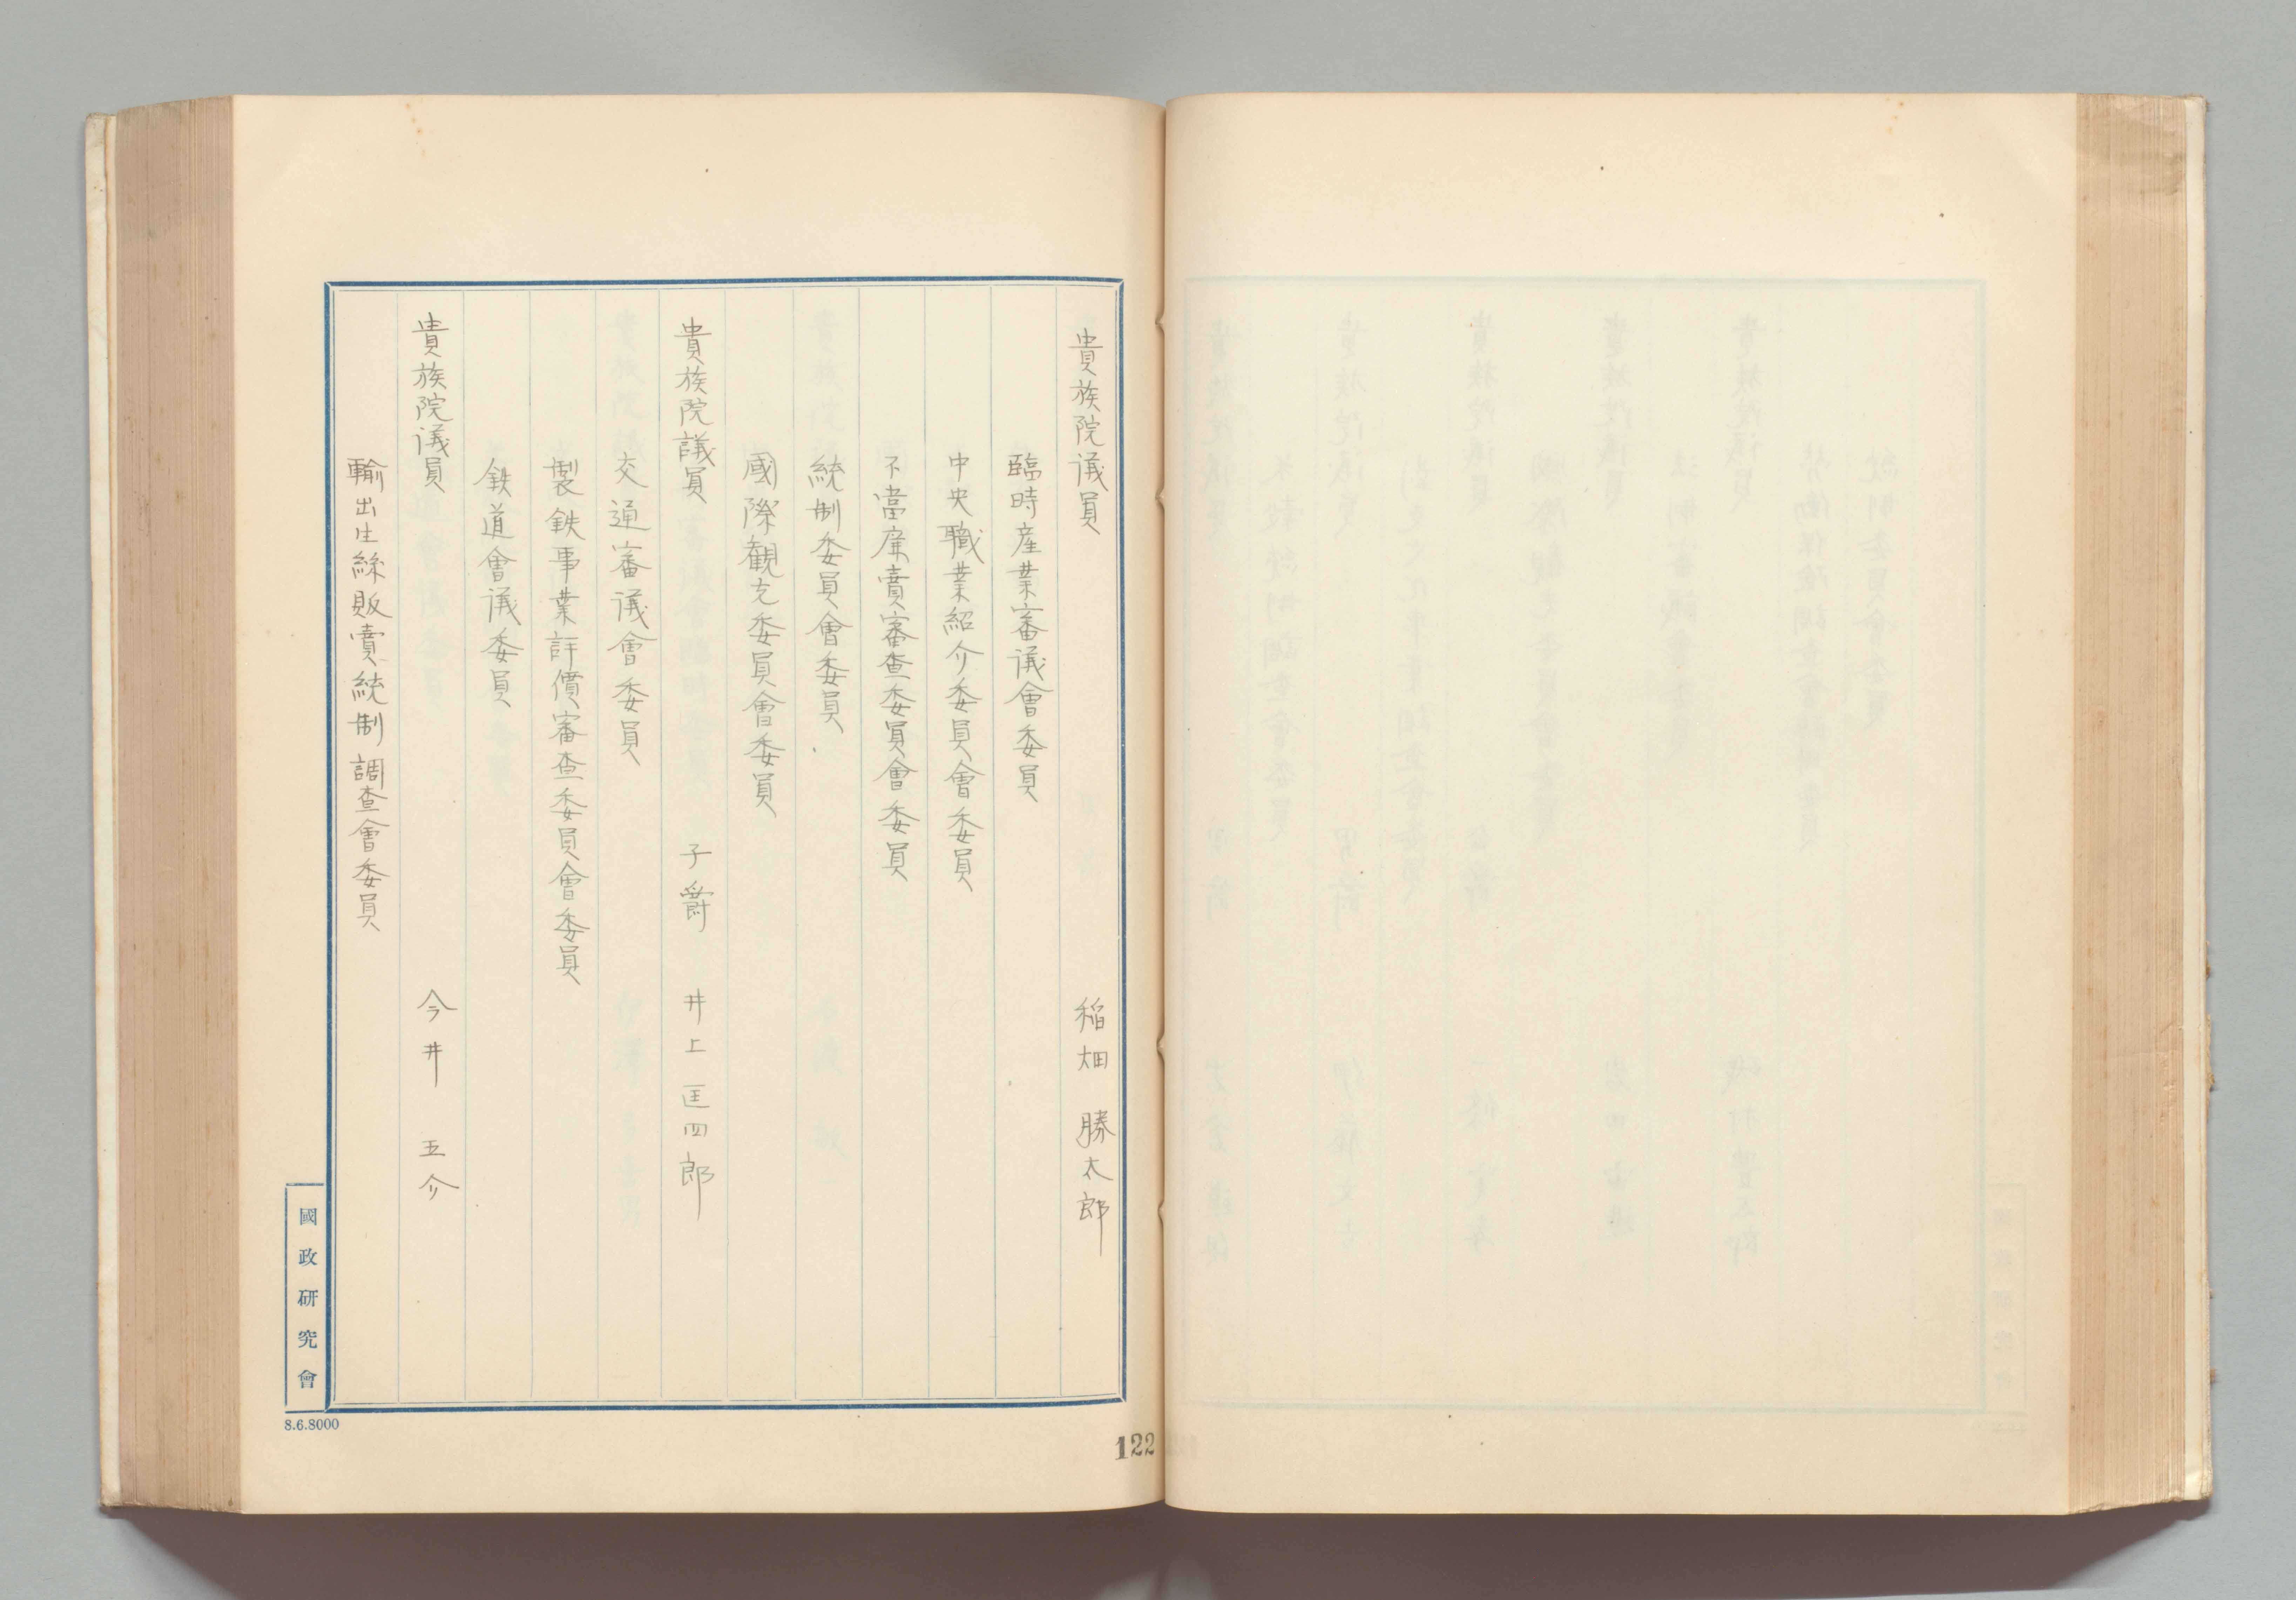 貴族院議員 稲畑勝太郎
臨時産業審議會委員
中央職業紹介委員會委員
不當廉賣審査委員會委員
統制委員會委員
國際観光委員會委員
貴族院議員 子爵 井上匡四郎
交通審議會委員
製鉄事業評價審査委員會委員
鉄道會議委員
貴族院議員 今井五介
輸出生絲販賣統制調査會委員
國政研究會
8.6.8000
122